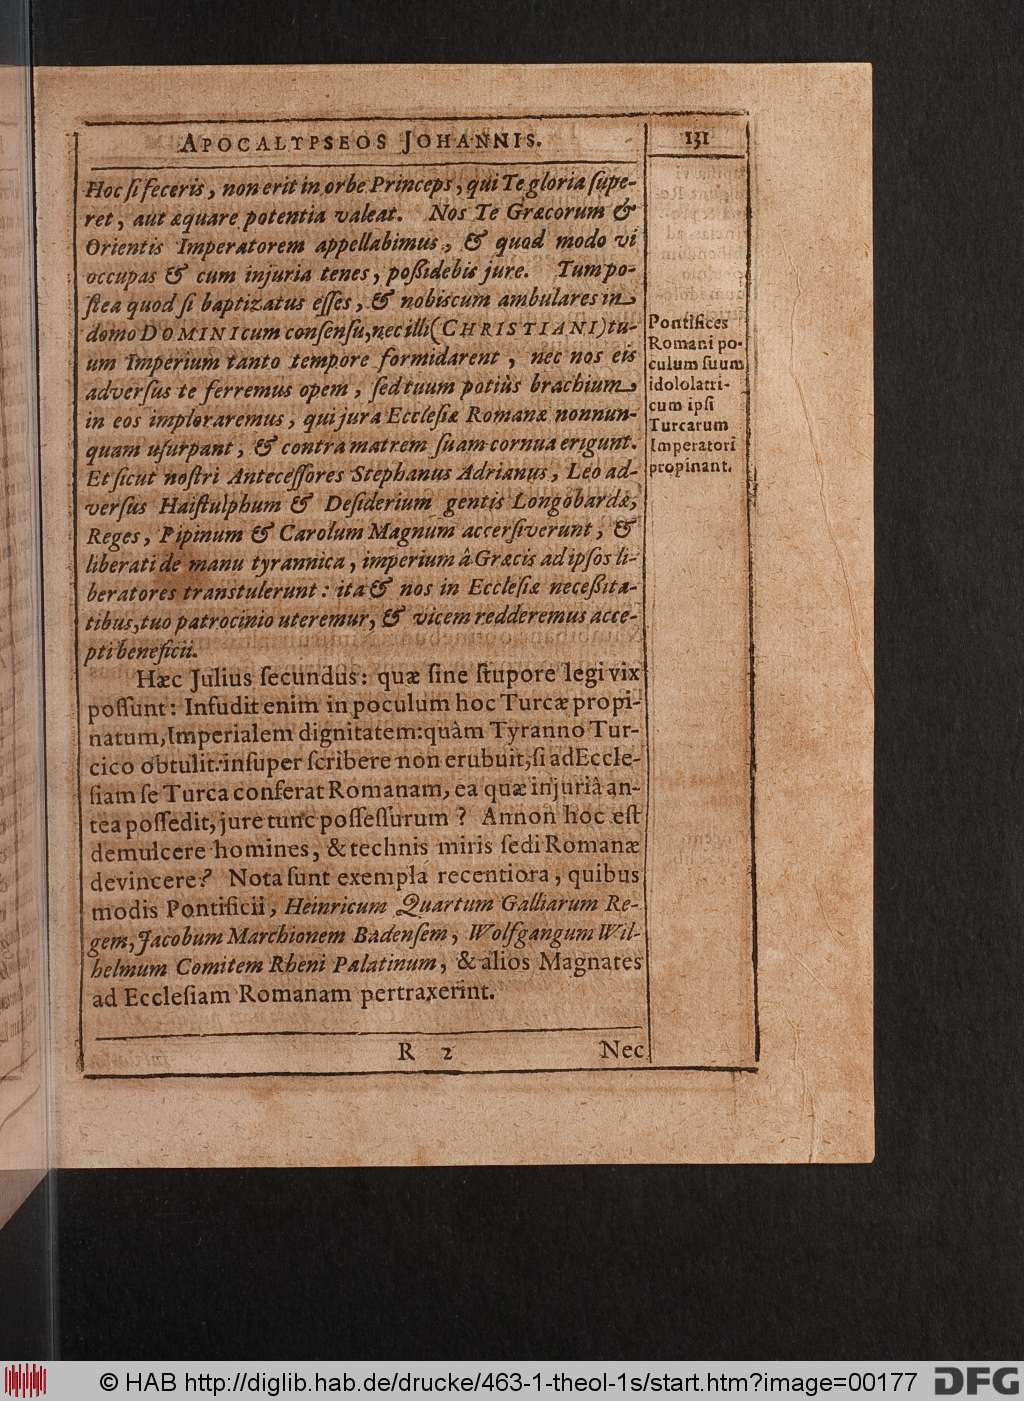 APOCALYPSEOS JOHANNIS.
131
Hoc ſi feceris, non erit in orbe Princeps, qui Te gloria ſupe-
ret, aut æquare potentia valeat. Nos Te Græcorum &
Orientis Imperatorem appellabimus, & quod modo vi
occupas & cum injuria tenes, poßidebis jure. Tum po-
ſtea quod ſi baptizatus eſſes, & nobiscum ambulares in
domo DOMINI cum conſenſu, nec illi (CHRISTIANI) tu-
um Imperium tanto tempore formidarent, nec nos eis
adverſus te ferremus opem, ſed tuum potiùs brachium
in eos imploraremus, qui jura Eccleſiæ Romanæ nonnun-
quam uſurpant, & contra matrem ſuam cornua erigunt.
Et ſicut noſtri Anteceſſores Stephanus Adrianus, Leo ad-
verſus Haiſtulphum & Deſiderium gentis Longobardæ,
Reges, Pipinum & Carolum Magnum accerſiverunt, &
liberati de manu tyrannica, imperium â Græcis ad ipſos li-
beratores transtulerunt: ita & nos in Eccleſiæ neceßita-
tibus, tuo patrocinio uteremur, & vicem redderemus acce-
pti beneficii.
Hæc Julius ſecundus: quæ ſine ſtupore legi vix
poſſunt: Infudit enim in poculum hoc Turcæ propi-
natum, Imperialem dignitatem: quàm Tyranno Tur-
cico obtulit: inſuper ſcribere non erubuit, ſi ad Eccle-
ſiam ſe Turca conferat Romanam, ea quæ injuriâ an-
tea poſſedit, jure tunc poſſeſſurum? Annon hoc eſt
demulcere homines, & technis miris ſedi Romanæ
devincere? Nota ſunt exempla recentiora, quibus
modis Pontificii, Heinricum Quartum Galliarum Re-
gem, Jacobum Marchionem Badenſem, Wolfgangum Wil-
helmum Comitem Rheni Palatinum, & alios Magnates
ad Eccleſiam Romanam pertraxerint.
R 2
Nec
Pontifices
Romani po-
culum ſuum
idololatri-
cum ipſi
Turcarum
Imperatori
propinant.
© HAB http://diglib.hab.de/drucke/463-1-theol-1s/start.htm?image=00177
DFG